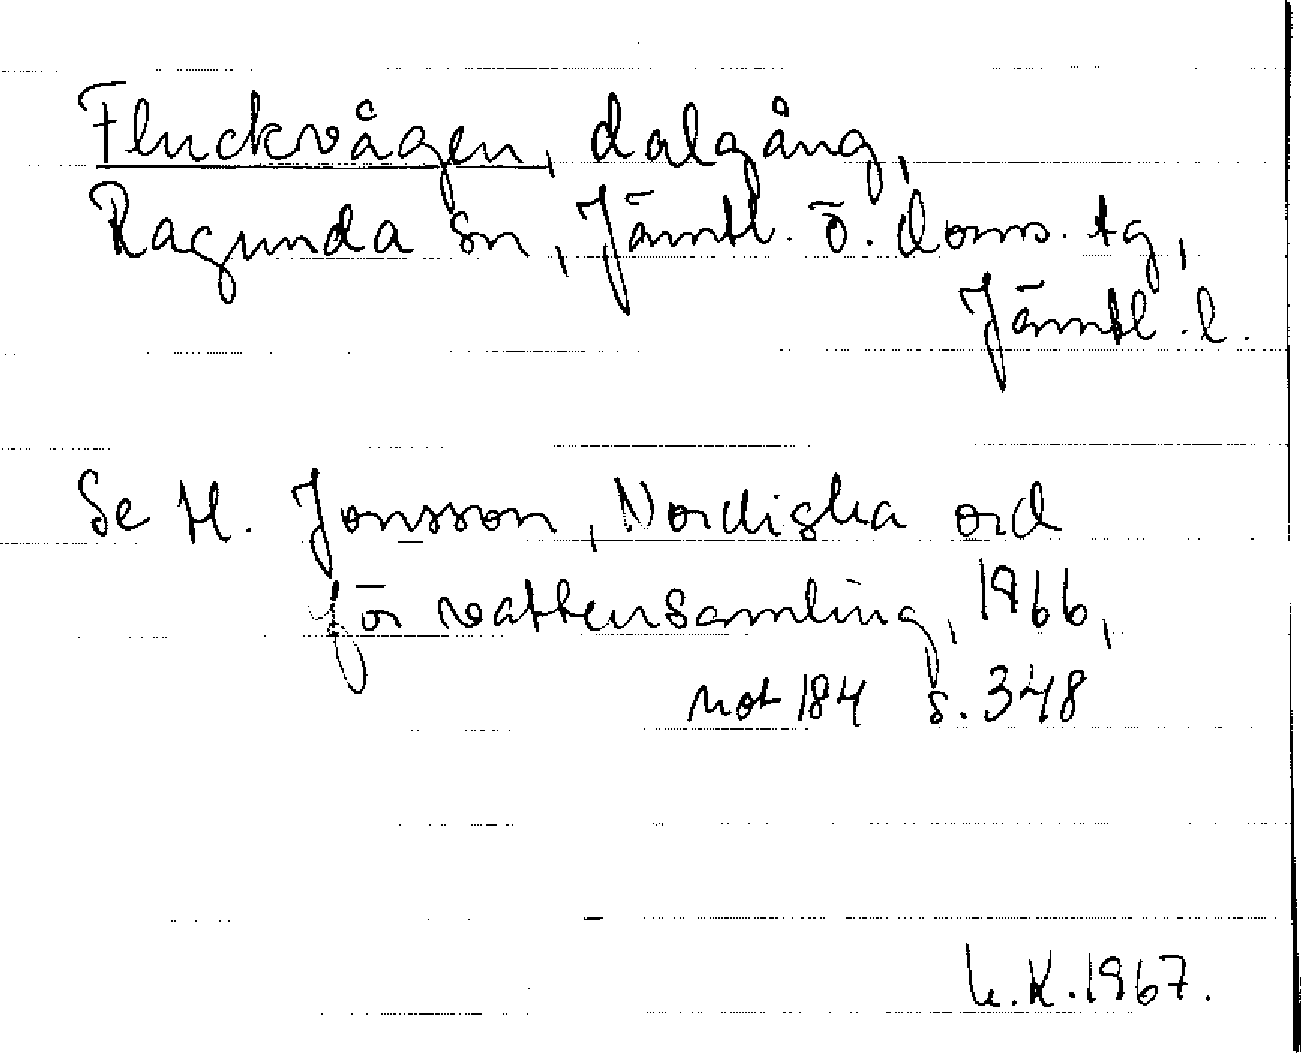 Fluckvågen, dalgång,
Ragunda sn, Jämtl. ö. doms. tg,
Jämtl. l.
Se H. Jonsson, Nordiska ord
för vattensamling, 1966,
not 184 s. 348
K. 1967.